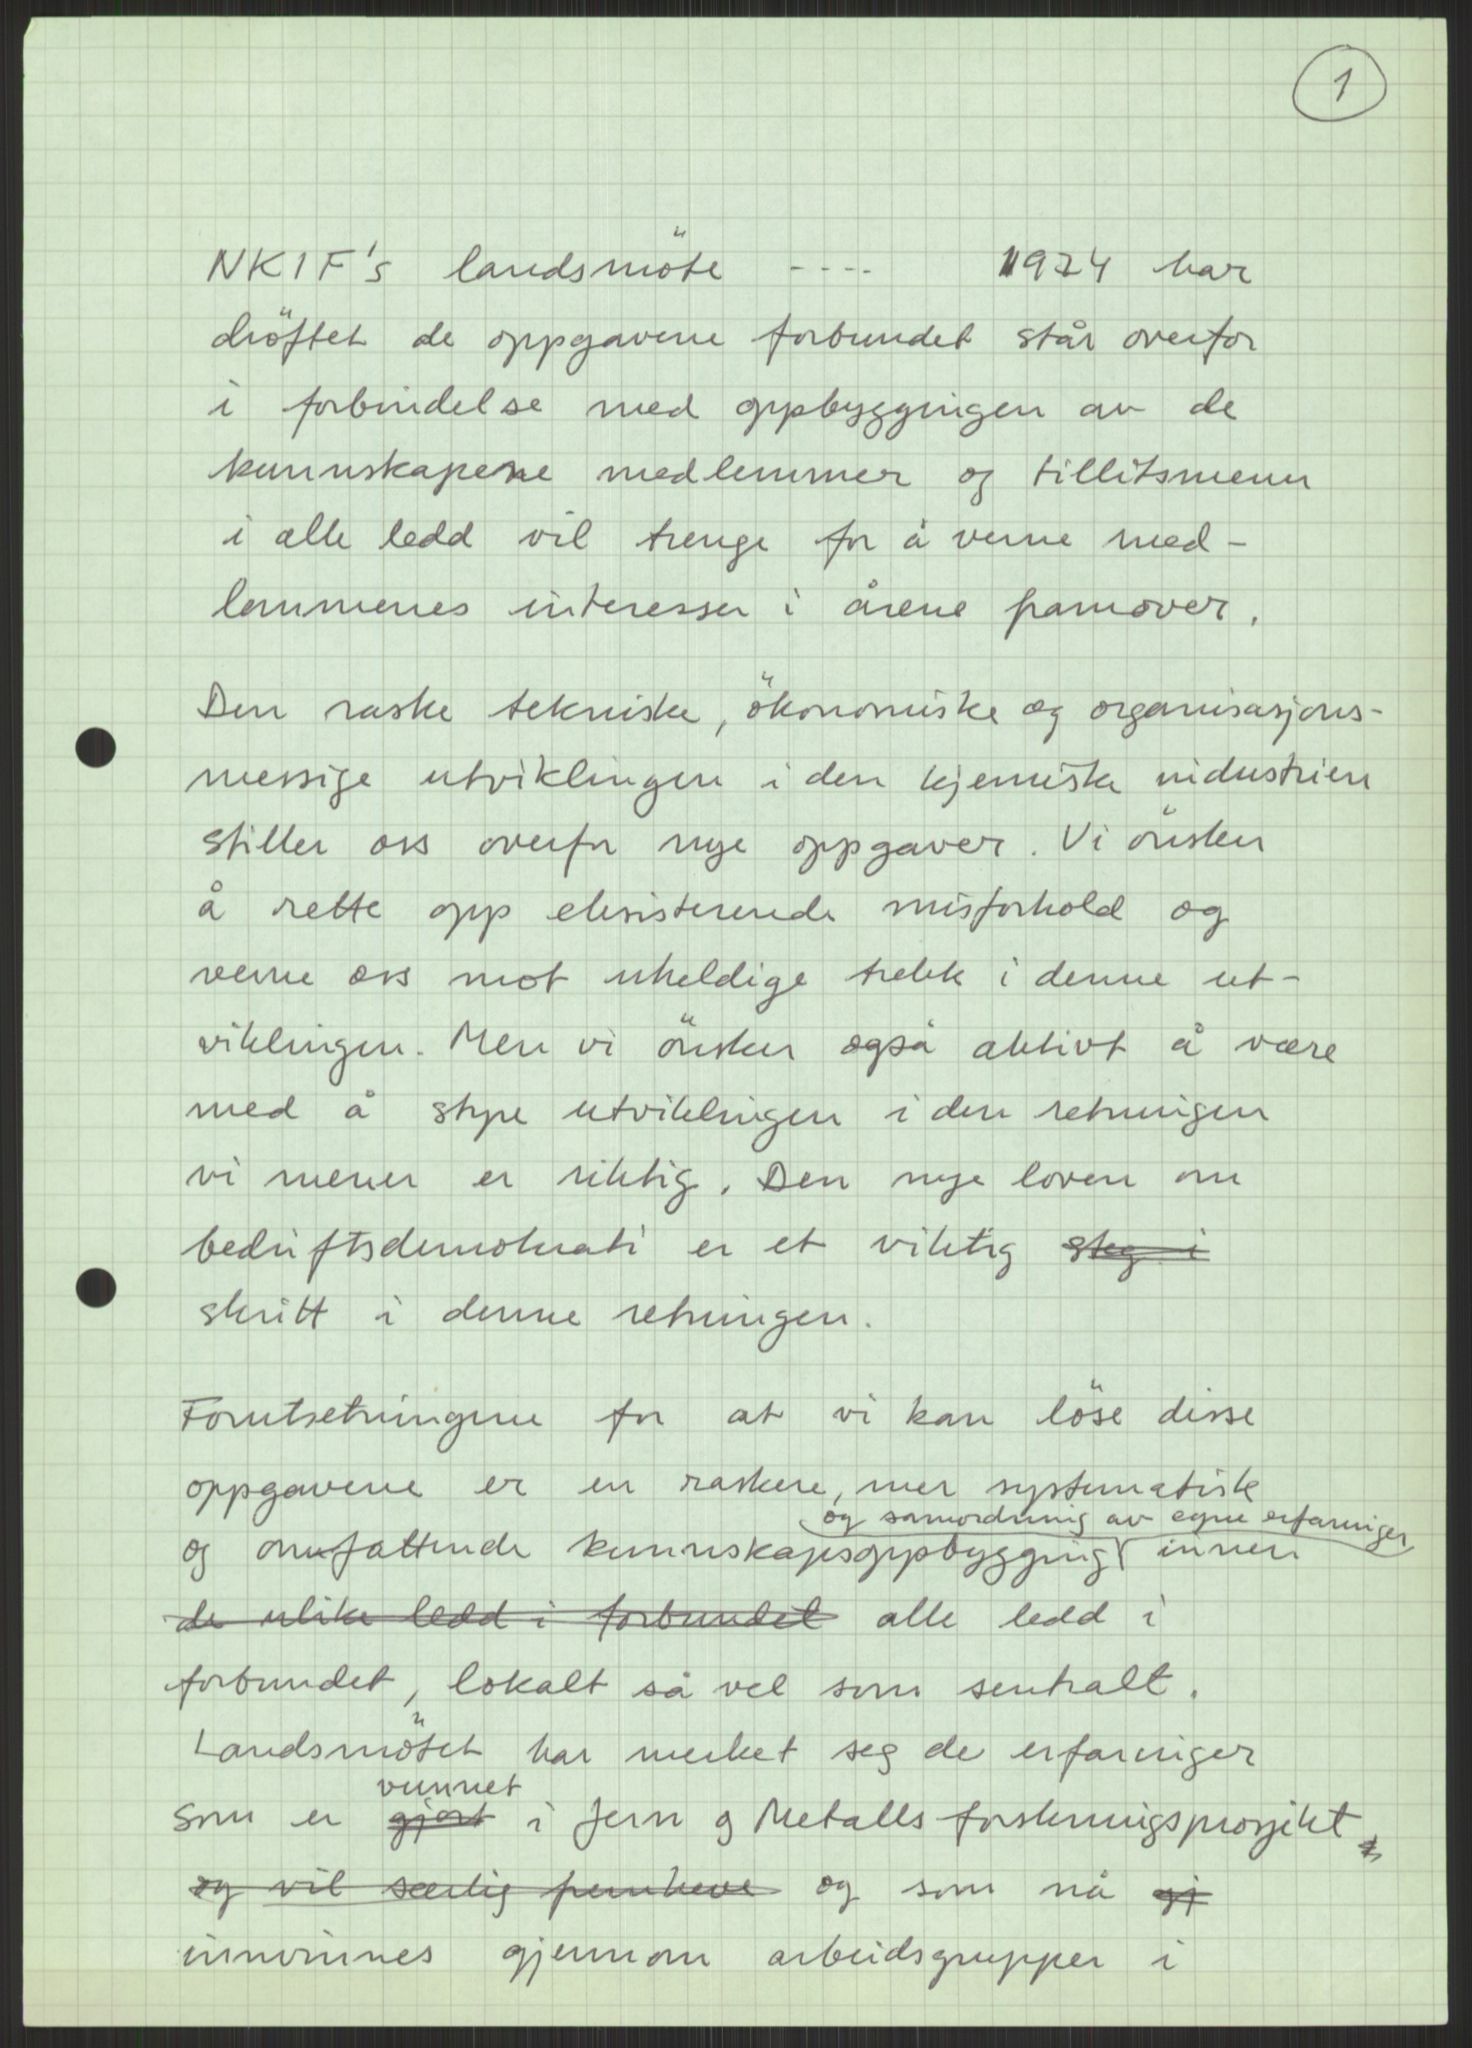 1
NKIF's landsmöte ---- 1974 har
dröftet de oppgavene forbundet står overfor
i forbindelse med oppbyggingen av de
kunnskapene medlemmer og tillitsmenn
i alle ledd vil trenge for å verne med-
lemmenes interesser i årene framover.
Den raske tekniske, ökonomiske og organisasjons-
messige utviklingen i den kjemiske industrien
stiller oss overfor nye oppgaver. Vi önsker
å rette opp eksisterende misforhold og
verne oss mot uheldige trekk i denne ut-
viklingen. Men vi önsker også aktivt å være
med å styre utviklingen i den retningen
vi mener er riktig. Den nye loven om
bedriftsdemokrati er et viktig steg i
skritt i denne retningen.
Forutsetningene for at vi kan löse disse
oppgavene er en raskere, mer systematisk
og samordning av egne erfaringer
og omfattende kunnskapsoppbygging innen
de ulike ledd i forbundet alle ledd i
forbundet, lokalt så vel som sentralt.
Landsmötet har merket seg de erfaringer
vunnet
som er gjort i Jern og Metalls forskningsprosjekt
og vil særlig fremheve og som nå gj
innvinnes gjennom arbeidsgrupper i